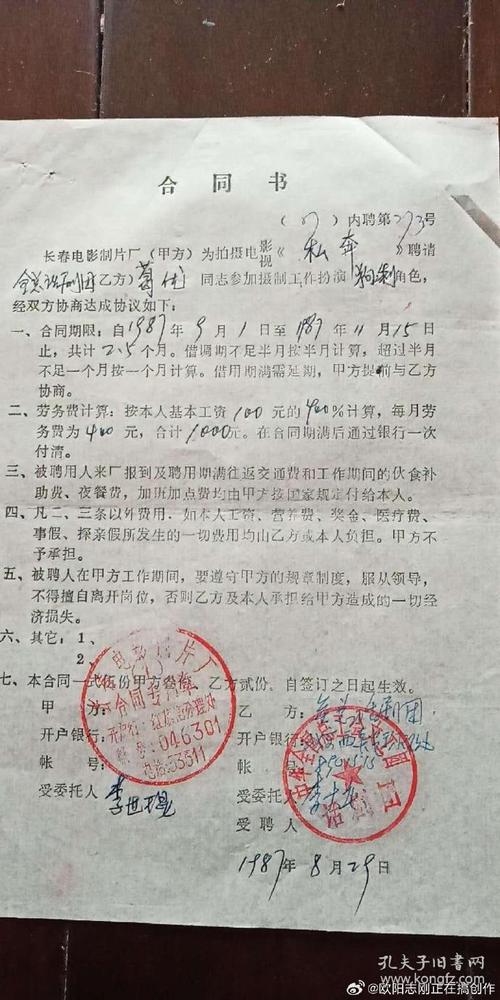 合同书
(87)内聘第273号
长春电影制片厂（甲方）为拍摄电影视《私奔》聘请
全总话剧团乙方）葛优同志参加摄制工作扮演 角色，
经双方协商达成协议如下：
一、合同期限：自1987年9月1日至1987年11月15日
止，共计2.5个月。借调期不足半月按半月计算，超过半月
不足一个月按一个月计算。借用期满需延期，甲方提前与乙方
协商。
二、劳务费计算：按本人基本工资100元的400%计算，每月劳
务费为400元，合计1000元。在合同期满后通过银行一次
付清。
三、被聘用人来厂报到及聘用期满往返交通费和工作期间的伙食补
助费、夜餐费，加班加点费均由甲方按国家规定付给本人。
四、凡二、三条以外费用．如本人工资、营养费、奖金、医疗费、
事假、探亲假所发生的一切费用均由乙方或本人负担。甲方不
予承担。
五、被聘人在甲方工作期间，要遵守甲方的规章制度，服从领导，
不得擅自离开岗位，否则乙方及本人承担给甲方造成的一切经
济损失。
六、其它：1、
2、
七、本合同一式 份甲方 份，乙方贰份，自签订之日起生效。
甲方：
开户银行：
帐号：
受委托人 李世
电影制片厂
合同专用章
开户行：红旗街办理处
帐号：046301
电话：53311
乙方：全总话剧团
开户银行：
帐号：
受委托人
受聘人
中华全国总工会
话剧团
1987年8月29日
孔夫子旧书网
@欧阳志刚正在搞创作